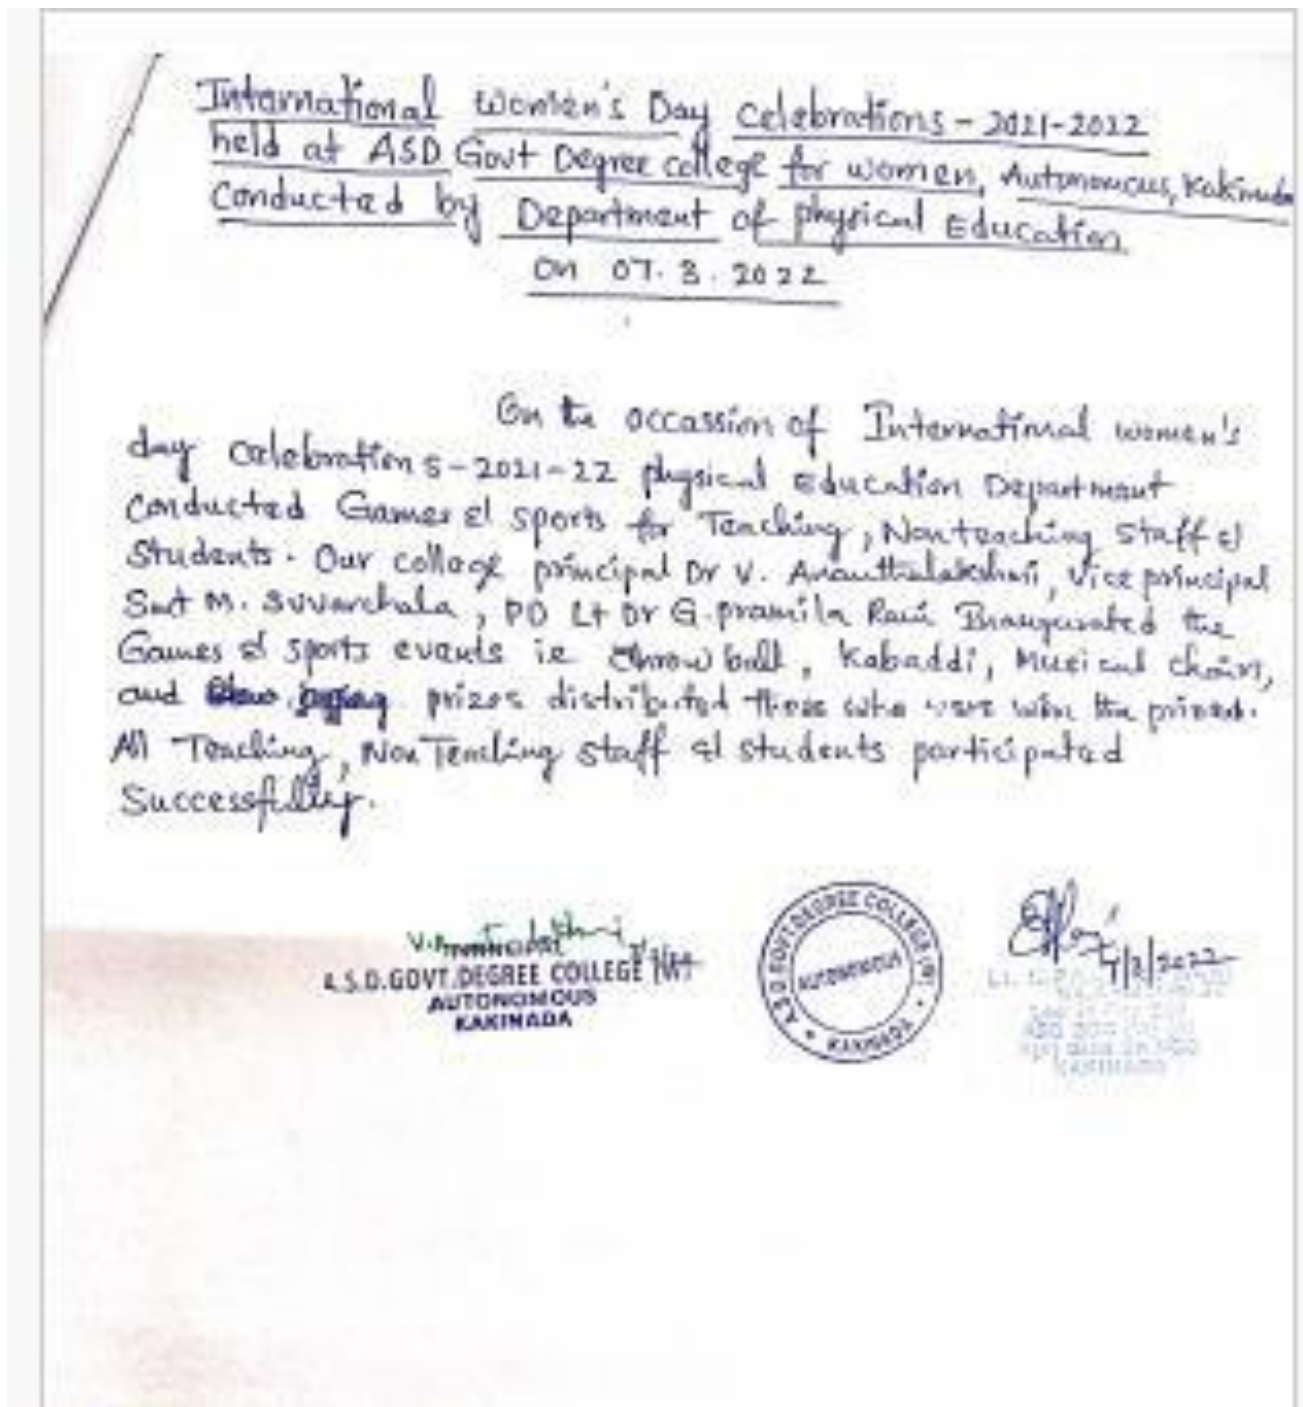 International Women's Day Celebrations - 2021-2022
held at ASD Govt Degree college for women, Autonomous, Kakinada
Conducted by Department of physical Education
on 07.3.2022
On the occassion of International women's
day celebrations - 2021-22 physical Education Department
Conducted Games & sports for Teaching, Nonteaching staff &
Students. Our college principal Dr V. Ananthalakshmi, vice principal
Smt M. Suvarchala, PD Lt Dr G. pramila Rani Inaugurated the
Games & sports events ie throw ball, kabaddi, Musical chairs,
and prizes distributed those who were win the prizes.
All Teaching, Non Teaching staff & students participated
Successfully.
PRINCIPAL
A.S.D.GOVT.DEGREE COLLEGE (W)
AUTONOMOUS
KAKINADA
A.S.D GOVT.DEGREE COLLEGE (W)
AUTONOMOUS
KAKINADA
KAKINADA